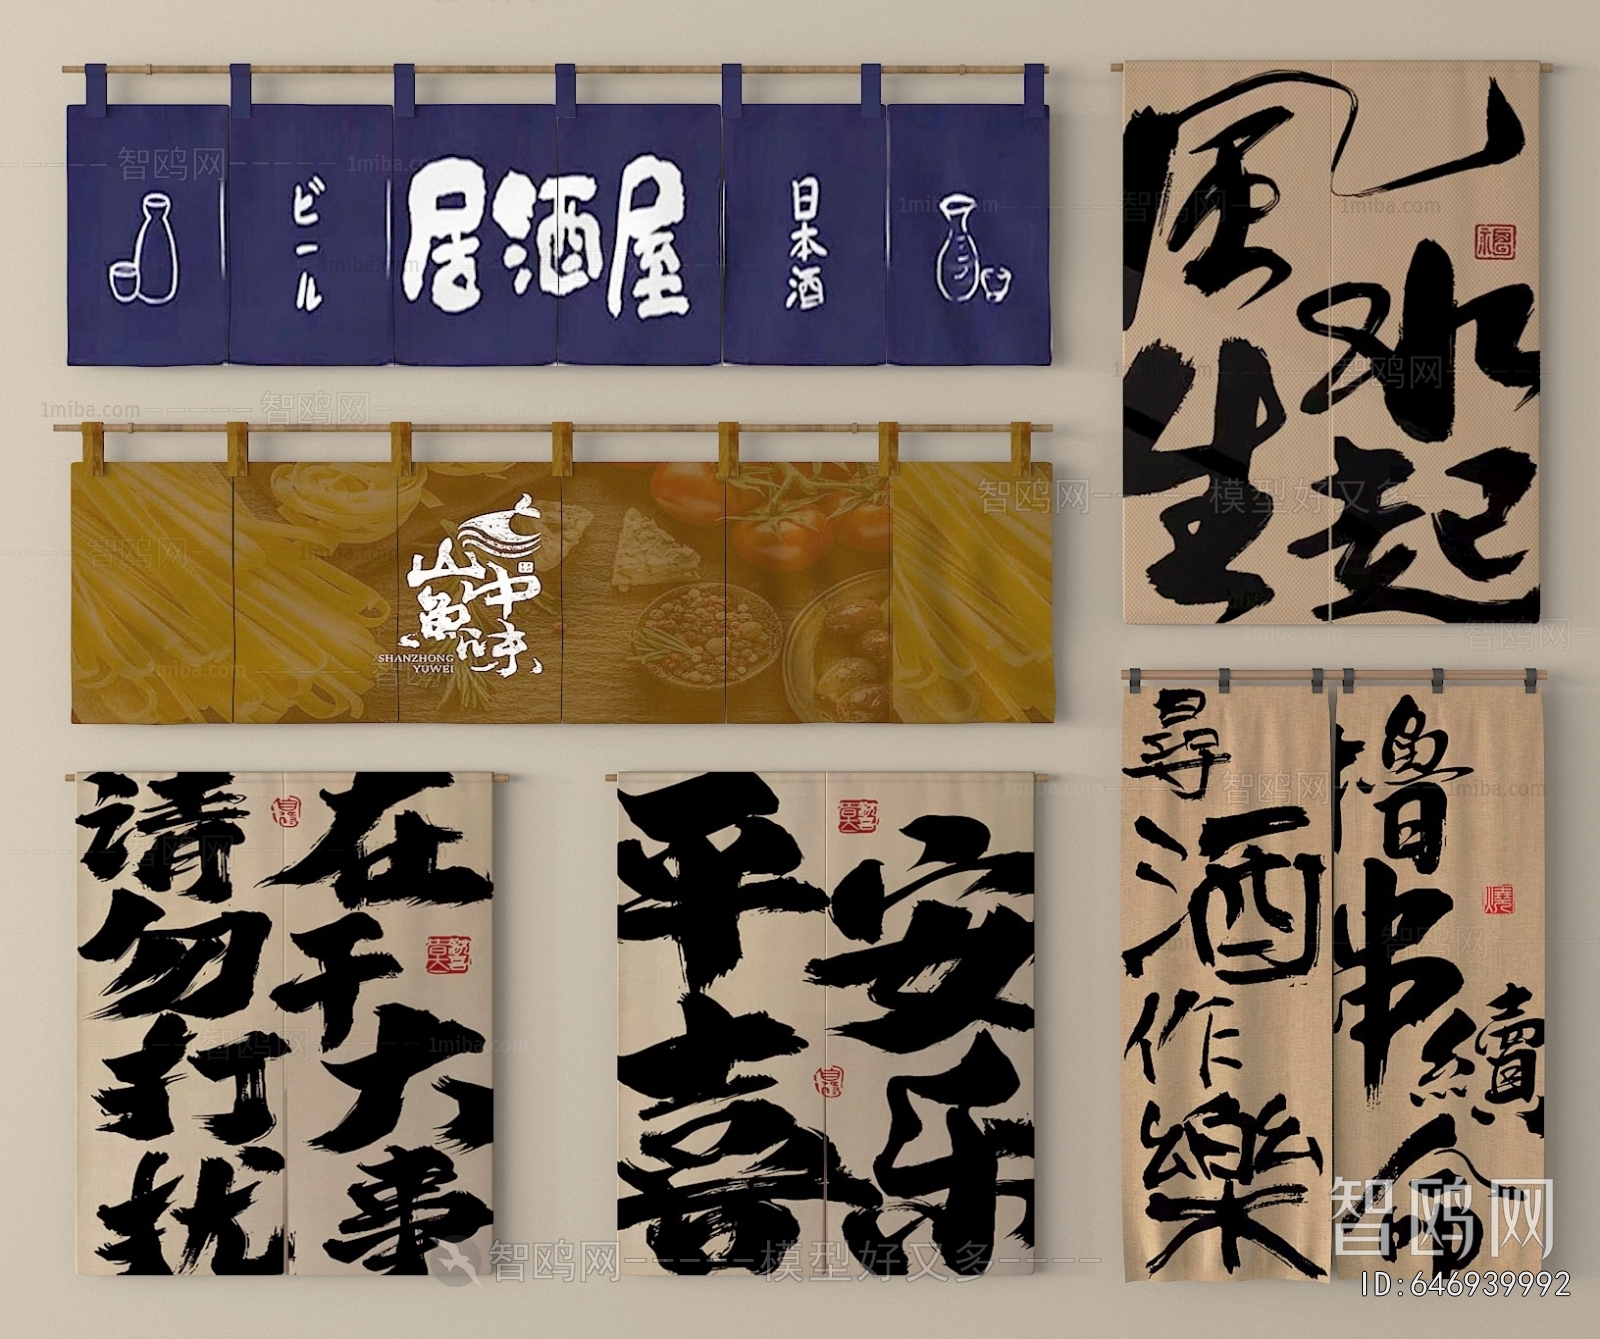 ビール
居酒屋
日本酒
山中
魚味
SHANZHONG
YUWEI
风生
水起
福
请勿打扰
在干大事
平喜
安乐
尋酒作樂
擼串續命
燒
智鸥网
1miba.com
模型好又多
ID:646939992